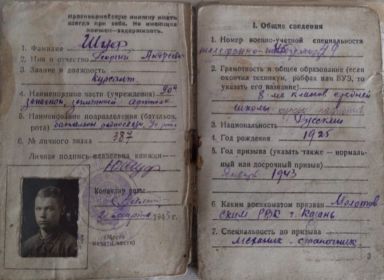 Красноармейскую книжку иметь
всегда при себе. Не имеющих
книжек — задерживать.
1. Фамилия Шуф
2. Имя и отчество Георгий Андреевич
3. Звание и должность
курсант
4. Наименование части (учреждения)
5. Наименование подразделения (батальон,
рота)
6. № личного знака 387
Личная подпись владельца книжки—
Шуф
Командир роты
1943 г.
(Место
печати части)
I. Общие сведения
1. Номер военно-учетной специальности
2. Грамотность и общее образование (если
окончил техникум, рабфак или ВУЗ, то
указать его название)
классов средней
школы
3. Национальность Русский
4. Год рождения 1925
5. Год призыва (указать также — нормаль-
ный или досрочный призыв)
Январь 1943
6. Каким военкоматом призван Молотов
ским РВК г. Казань
7. Специальность до призыва
Механик-станочник
3